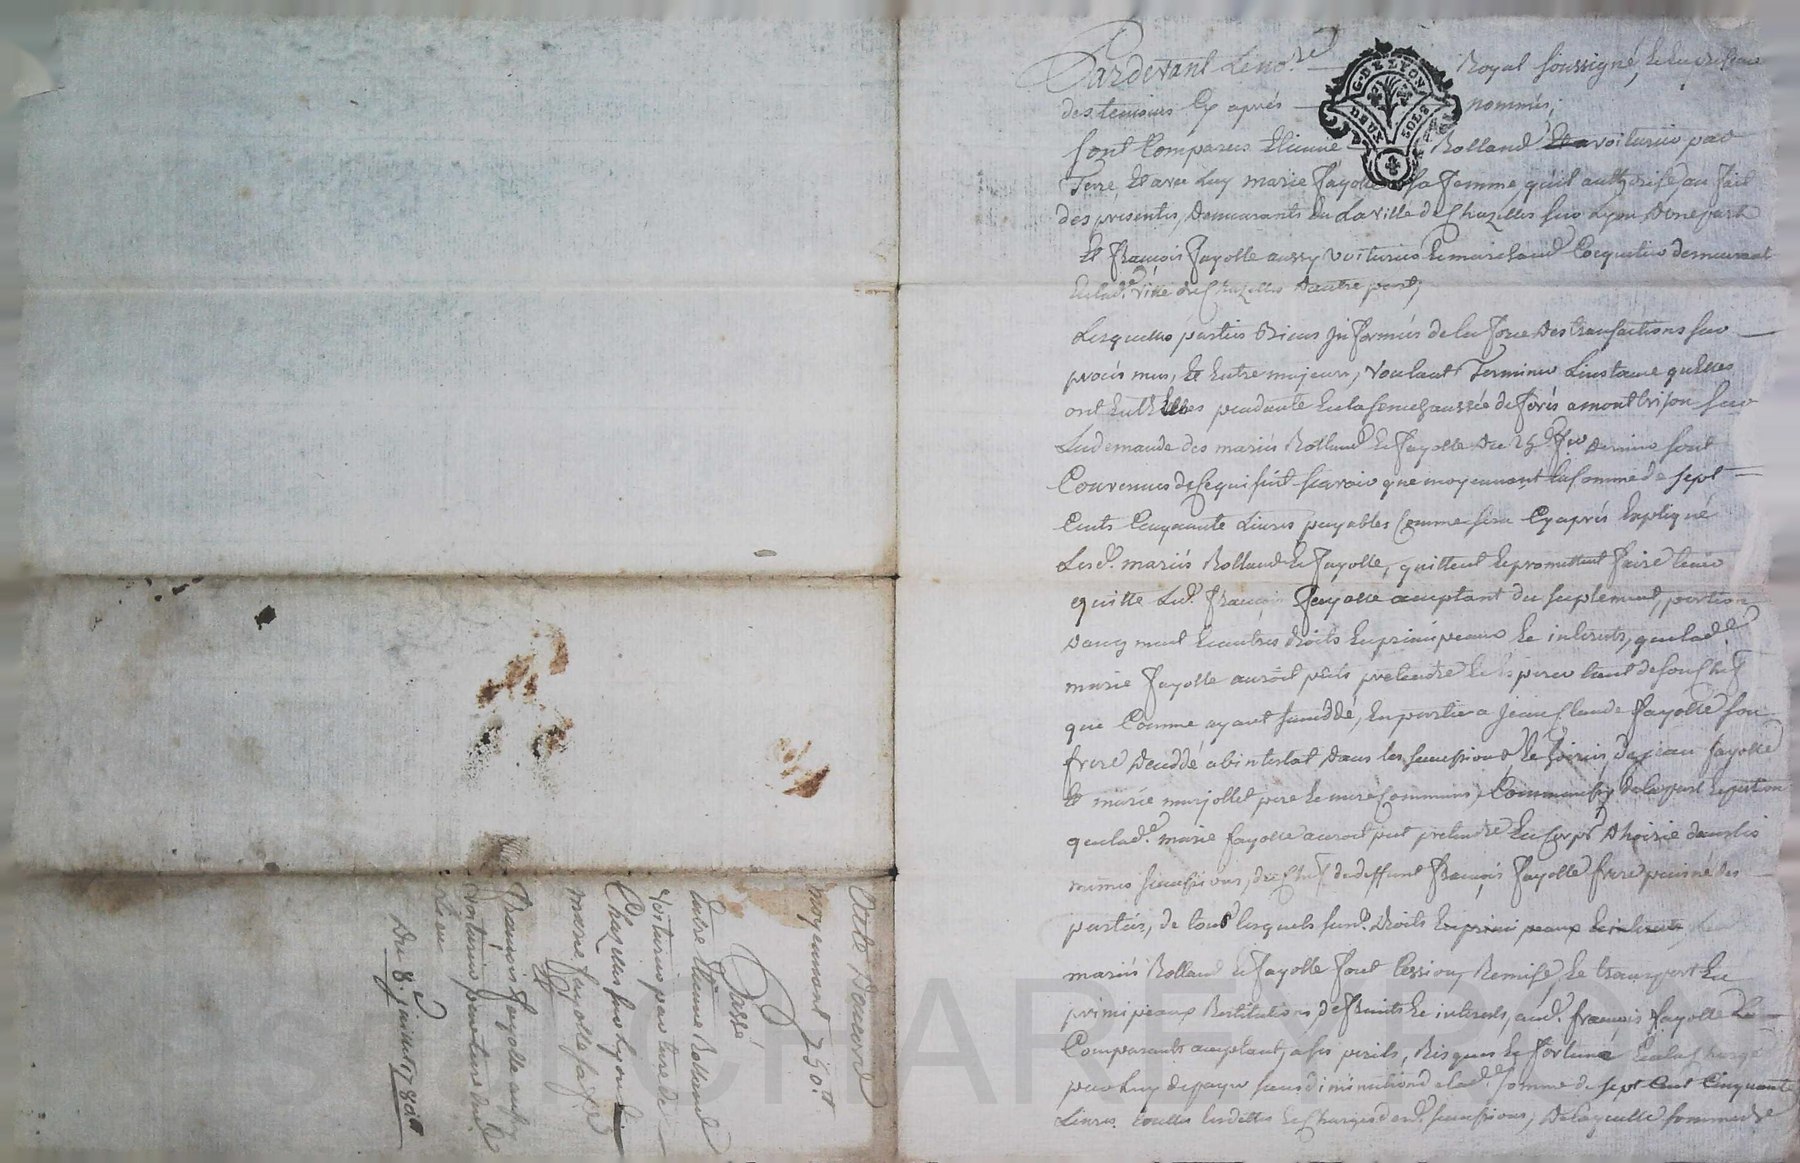 Pardevant Le no.re Royal soussigné, et en presence
des temoins Cy aprés nommés,
sont Comparus Etienne Rolland voiturier par
Terre, et avec Luy marie fayolle sa femme qu'il authorise au fait
des presentes, demeurants en La ville de Chazelles sur Lyon d'une part
Et françois fayolle aussy voiturier et marchand Coquetier demeurant
en lad.e ville de Chazelles d'autre part;
Lesquelles parties Bien informées de la force des transactions sur
procés mus, et Entre majeurs, voulant Terminer L'instance qu'elles
ont entr'elles pendante en la senechaussée de forés a montbrison sur
La demande des mariés Rolland et fayolle du 25 dernier sont
Convenues de Ce qui suit scavoir que moyennant la somme de sept
Cents Cinquante Livres payables Comme sera Cy aprés Expliqué
Lesd. mariés Rolland et fayolle, quittent et promettent faire tenir
quitte Led. françois fayolle acceptant du suplement, portion
d'augment et autres droits en principeaux et interests, que lad.e
marie fayolle auroit pû pretendre et esperer tant de son Chef
que Comme ayant succedé, en partie a jean Claude fayolle son
frere decedé abintestat dans les successions et hoiries de jean fayolle
et marie marjollet pere et mere Communs, de la part et portion
que lad.e marie fayolle auroit put pretendre en Corps d'hoirie dans les
mêmes successions, du Chef de deffunt françois fayolle frere puiné des
parties, de tous lesquels susd. droits en principeaux et interests Les
mariés Rolland et fayolle font Cession, Remise, et transport en
principeaux Restitutions de fruits et interests, aud. françois fayolle
Comparant acceptant, a ses perils, Risques et fortune et a la Charge
par Luy de payer sans diminution de lad.e somme de sept Cent Cinquante
Livres toutes les dettes et Charges desd. successions, De laquelle somme de
Acte D'accord
moyennant 750.tt
Passé
Entre Etienne Rolland
voiturier par terre de
Chazelles sur Lyon et
marie fayolle sa fe
Et
françois fayolle aussy
voiturier par terre dud.
Lieu
Du 8. juillet 178
SUCHAREYRON
G. DE LYON
DEUX SOLS